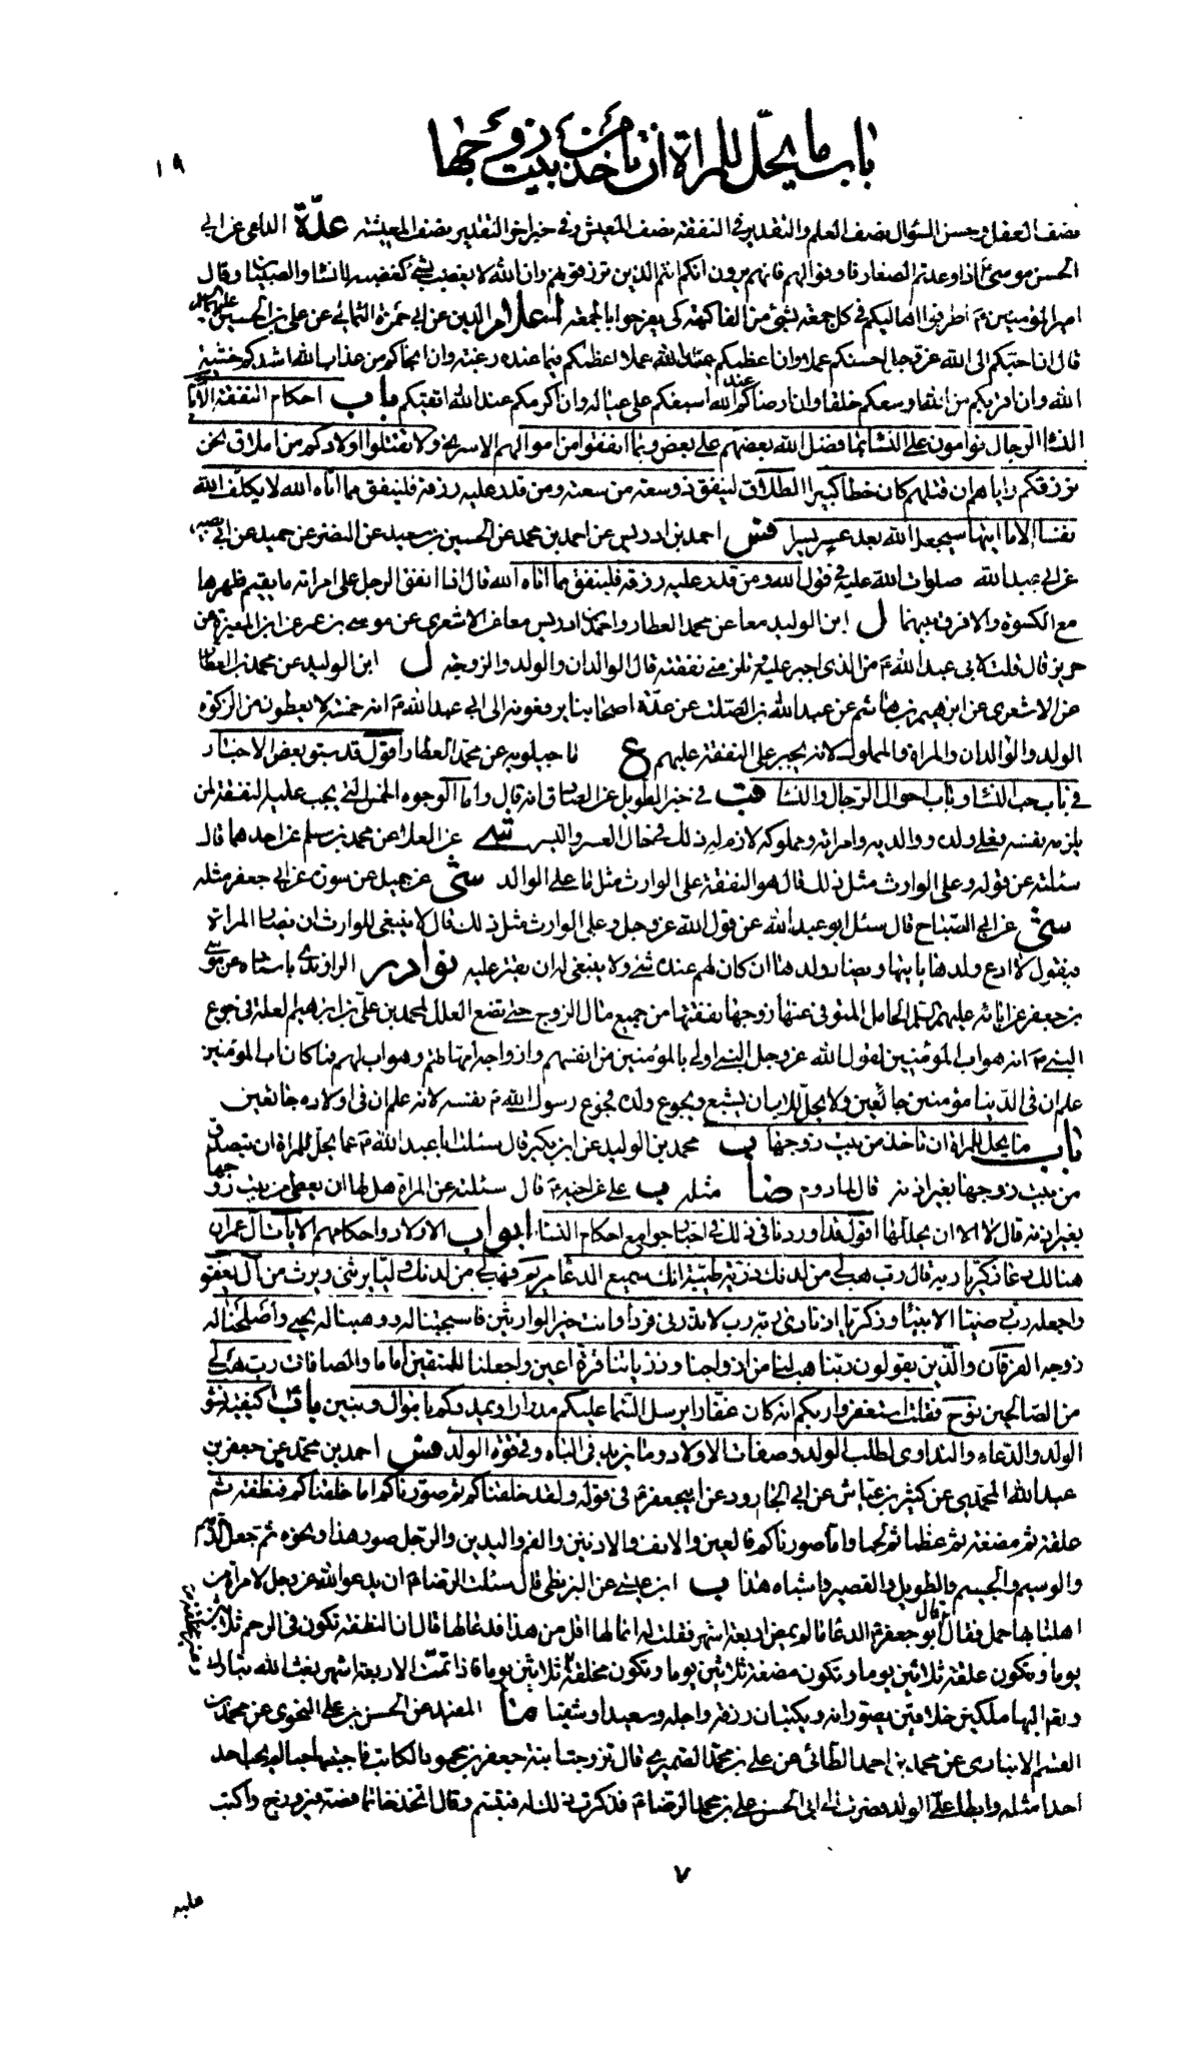 باب ما يحلّ للمراة ان تاخذ من بيت زوجها
١٩
نصف العقل وحسن السؤال نصف العلم والتقدير في النفقة نصف العيش وفي خبر اخر التقدير نصف المعيشة عدّة الداعى عن ابي
الحسن موسى ع اذا وعدتم الصغار فاوفوا لهم فانهم يرون انكم انتم الذين ترزقونهم وان الله لا يغضب بشئ كغضبه للنساء والصبيان وقال
امير المؤمنين ع اطرفوا اهاليكم في كل جمعة بشئ من الفاكهة كى يفرحوا بالجمعة اعلام الدين عن ابي حمزة الثمالي عن علي بن الحسين عليهما السلم
قال ان احبكم الى الله عز وجل احسنكم عملا وان اعظمكم عند الله عملا اعظمكم فيما عنده رغبة وان انجاكم من عذاب الله اشدكم خشية
الله وان اقربكم من الله اوسعكم خلقا وان ارضاكم عند الله اسبغكم على عياله وان اكرمكم عند الله اتقيكم باب احكام النفقة الايات
النساء الرجال قوامون على النساء بما فضل الله بعضهم على بعض وبما انفقوا من اموالهم الاسرى ولا تقتلوا اولادكم من املاق نحن
نرزقكم واياهم ان قتلهم كان خطا كبيرا الطلاق لينفق ذو سعة من سعته ومن قدر عليه رزقه فلينفق مما اتاه الله لا يكلف الله
نفسا الا ما اتيها سيجعل الله بعد عسر يسرا فس احمد بن ادريس عن احمد بن محمد عن الحسين بن سعيد عن النضر عن حميد عن ابي بصير
عن ابي عبد الله صلوات الله عليه في قول الله ومن قدر عليه رزقه فلينفق مما اتاه الله قال اذا انفق الرجل على امراته ما يقيم ظهرها
مع الكسوة والا فرق بينهما ل ابن الوليد معا عن محمد العطار واحمد بن ادريس معا عن الاشعري عن موسى بن عمر عن ابن المغيرة عن
حريز قال قلت لابي عبد الله ع من الذى اجبر عليه وتلزمني نفقته قال الوالدان والولد والزوجة ل ابن الوليد عن محمد العطار
عن الاشعري عن ابرهيم بن هاشم عن عبد الله بن الصلت عن عدة اصحابنا يرفعونه الى ابي عبد الله ع انه خمسة لا يعطون من الزكوة
الولد والوالدان والمراة والمملوك لانه يجبر على النفقة عليهم ع ماجيلويه عن محمد العطار اقول قد سبق بعض الاخبار
في باب حب النساء وباب احوال الرجال والنساء ف في خبر الطويل عن الصادق انه قال واما الوجوه الخمس التي يجب عليه النفقة لمن
يلزمه نفسه فعلى ولده ووالديه وامراته ومملوكه لازم له ذلك في حال العسر واليسر شى عن العلا عن محمد بن مسلم عن احدهما قال
سئلته عن قوله وعلى الوارث مثل ذلك قال هو النفقة على الوارث مثل ما على الوالد شى عن جميل عن سورة عن ابي جعفر مثله
شى عن ابي الصباح قال سئل ابو عبد الله عن قول الله عز وجل وعلى الوارث مثل ذلك قال لا ينبغي للوارث ان يضار المراة
فيقول لا ادع ولدها ياتيها ويضار ولدها ان كان لهم عنده شئ ولا ينبغي له ان يقتر عليه نوادر الراوندى باسناده عن موسى
بن جعفر عن ابائه عليهم السلم الحامل المتوفى عنها زوجها نفقتها من جميع مال الزوج حتى تضع العلل لمحمد بن علي بن ابرهيم العلة في جوع
النبي ع انه هو اب المؤمنين لقول الله عز وجل النبي اولى بالمؤمنين من انفسهم وازواجه امهاتهم وهو اب لهم فلما كان اب المؤمنين
علم ان في الدنيا مؤمنين جائعين ولا يحل للاب ان يشبع ويجوع ولده فجوع رسول الله ص نفسه لانه علم ان في اولاده جائعين
باب ما يحل للمراة ان تاخذ من بيت زوجها ب محمد بن الوليد عن ابن بكير قال سئلت ابا عبد الله ع عما يحل للمراة ان تصدق
من بيت زوجها بغير اذنه قال المادوم ضا مثله ب علي عن اخيه ع قال سئلته عن المراة هل لها ان تعطى من بيت زوجها
بغير اذنه قال لا الا ان يحللها اقول قد اوردنا في ذلك في اخبار جوامع احكام النساء ابواب الاولاد واحكامهم الايات آل عمران
هنالك دعا زكريا ربه قال رب هب لي من لدنك ذرية طيبة انك سميع الدعاء مريم فهب لي من لدنك وليا يرثني ويرث من آل يعقوب
واجعله رب رضيا الانبياء وزكريا اذ نادى ربه رب لا تذرني فردا وانت خير الوارثين فاستجبنا له ووهبنا له يحيى واصلحنا له
زوجه الفرقان والذين يقولون ربنا هب لنا من ازواجنا وذرياتنا قرة اعين واجعلنا للمتقين اماما والصافات رب هب لي
من الصالحين نوح فقلت استغفروا ربكم انه كان غفارا يرسل السماء عليكم مدرارا ويمددكم باموال وبنين باب كيفية نشو
الولد والدعاء والتداوى لطلب الولد وصفات الاولاد وما يزيد في الباه وفي قوة الولد فس احمد بن محمد عن جعفر بن
عبد الله المحمدي عن كثير بن عياش عن ابي الجارود عن ابي جعفر ع في قوله ولقد خلقناكم ثم صورناكم اما خلقناكم فنطفة ثم
علقة ثم مضغة ثم عظما ثم لحما واما صورناكم فالعين والانف والاذنين والفم واليدين والرجل صور هذا ونحوه ثم جعل الدميم
والوسيم والجسيم والطويل والقصير واشباه هذا ب ابن عيسى عن البزنطي قال سئلت الرضا ع ان يدعو الله عز وجل لامراة من
اهلنا بها حمل فقال قال ابو جعفر ع الدعاء ما لم يمض اربعة اشهر فقلت له انما لها اقل من هذا فدعا لها قال ان النطفة تكون في الرحم ثلاثين
يوما وتكون علقة ثلاثين يوما وتكون مضغة ثلاثين يوما وتكون مخلقة ثلاثين يوما فاذا تمت الاربعة اشهر بعث الله تبارك
وتعالى اليها ملكين خلاقين يصورانه ويكتبان رزقه واجله وسعيدا او شقيا ما المفيد عن الحسن بن علي النحوى عن محمد بن
القسم الانباري عن محمد بن احمد الطائي عن علي بن محمد الضميري قال تزوجت ابنة جعفر بن محمود الكاتب فاحببتها حبا لم يحب احد
احدا مثله وابطا علي الولد فصرت الى ابي الحسن علي بن محمد الرضا ع فذكرت ذلك له فتبسم وقال اتخذ خاتما فضة فيروزج واكتب
٧
عليه